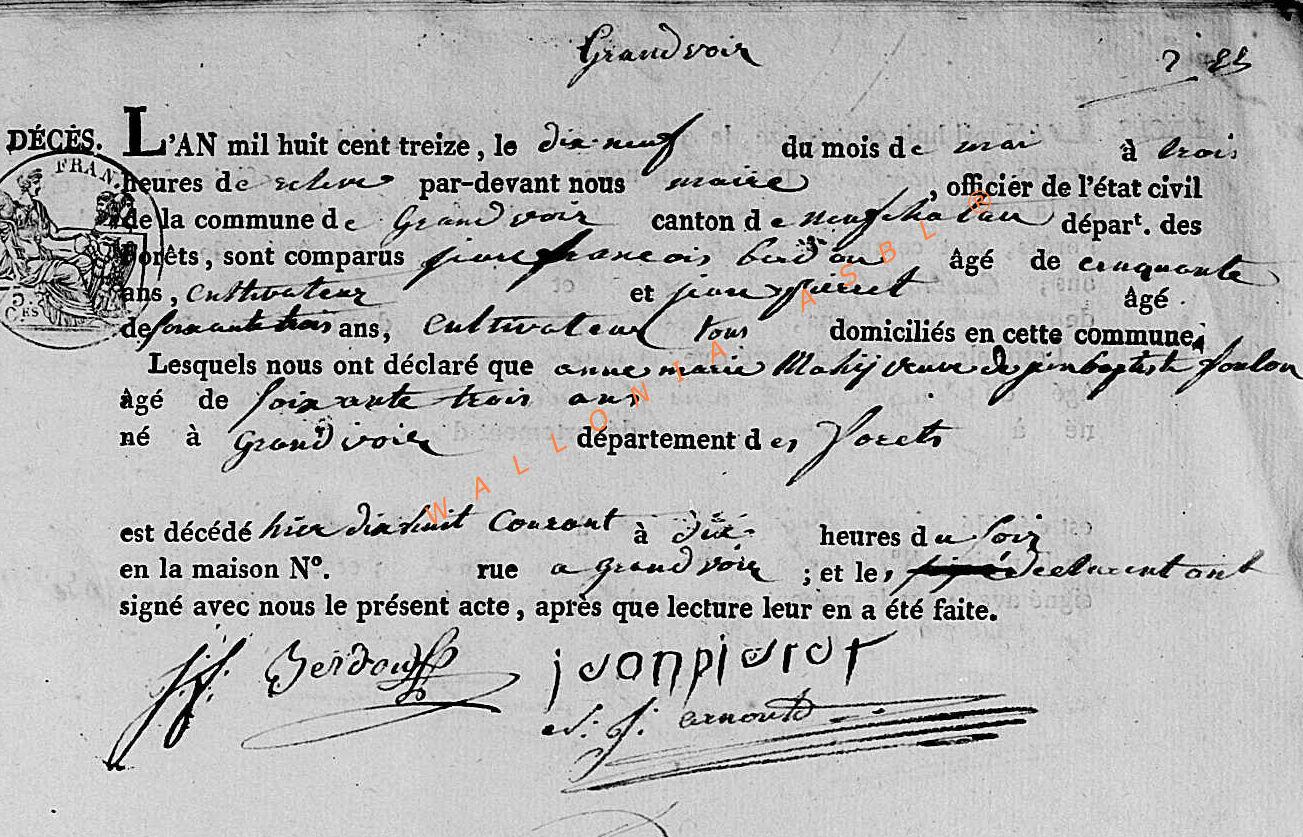 Grandvoir
DÉCÈS. L'AN mil huit cent treize, le dix neuf du mois de mai à trois
FRAN.
heures de par-devant nous maire, officier de l'état civil
de la commune de Grandvoir canton de neufchateau départ. des
Forêts, sont comparus jean francois berdou âgé de cinquante
ans, Cultivateur et jean pierret âgé
de soixante trois ans, Cultivateur tous domiciliés en cette commune,
Lesquels nous ont déclaré que anne marie Mahij veuve de jean baptiste
âgé de soixante trois ans
né à grandvoir département des forets
est décédé hier dix huit Courant à dix heures du soir
en la maison N°. rue a grandvoir; et les declarent ont
signé avec nous le présent acte, après que lecture leur en a été faite.
J. f. Berdou jean pierot
J. arnould
WALLONIA ASBL ®